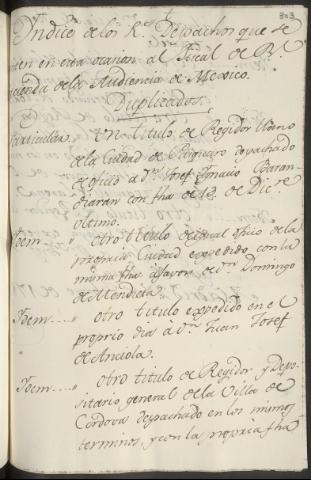 303
Yndice de los Rs. Despachos que se
en esta ocasion al Fiscal de Rl.
cienda de la Audiencia de Mexico.
Duplicados.
Particular. Un titulo de Regidor llano
de la Ciudad de despachado
de oficio a Dn. Josef Ignacio Baran-
diaran con fha de 13. de Dicre.
ultimo.
Ydem.... " otro titulo de igual oficio de la
propria Ciudad expedido con la
misma fha à favor de dn. Domingo
de Mendieta.
Ydem.... " otro titulo expedido en el
proprio dia a dn. Juan Josef
de Anciola.
Ydem.... " otro titulo de Regidor y Depo-
sitario general de la Villa de
Cordova despachado en los mismos
terminos, y con la propria fha